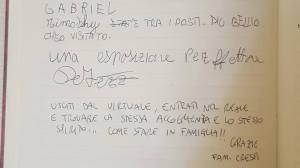 GABRIEL
Timothy È TRA I POSTI PIÙ BELLI
CHE HO VISITATO.
una esposizione Perfettina
USCITI DAL VIRTUALE, ENTRATI NEL REALE
E TROVARE LA STESSA ACCOGLIENZA E LO STESSO
SPIRITO... COME STARE IN FAMIGLIA!!
GRAZIE
FAM. CRESPI